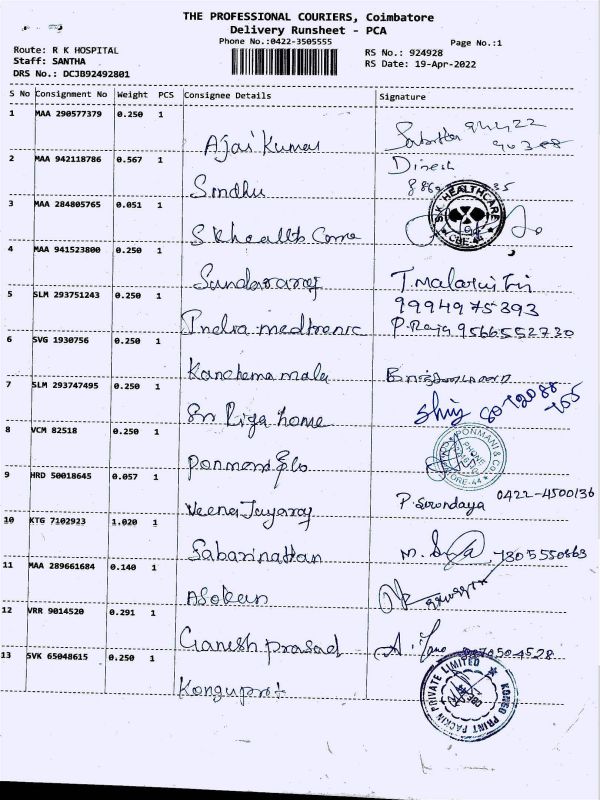 THE PROFESSIONAL COURIERS, Coimbatore
Delivery Runsheet - PCA
Phone No.:0422-3505555
Page No.:1
Route: R K HOSPITAL
Staff: SANTHA
DRS No.: DCJB92492801
RS No.: 924928
RS Date: 19-Apr-2022
S No Consignment No Weight PCS Consignee Details Signature
1 MAA 290577379 0.250 1
Ajai Kumar
2 MAA 942118786 0.567 1 Dinesh
Sindhu
3 MAA 284805765 0.051 1
S.K. HEALTHCARE
CBE-44
4 MAA 941523800 0.250 1
Sundararaj
5 SLM 293751243 0.250 1 9994975393
Indra medtronic P.Raja 9566552730
6 SVG 1930756 0.250 1
Kanchema mala
7 SLM 293747495 0.250 1
Sri Riga home
8 VCM 82518 0.250 1
PONMANI & CO
PHONE
9 HRD 50018645 0.057 1 0422-4500136
Veena Jayaraj
10 KTG 7102923 1.020 1
Sabarinathan 7805550863
11 MAA 289661684 0.140 1
Asokan
12 VRR 9014520 0.291 1
Ganesh prasad
13 SVK 65048615 0.250 1
PRIVATE LIMITED